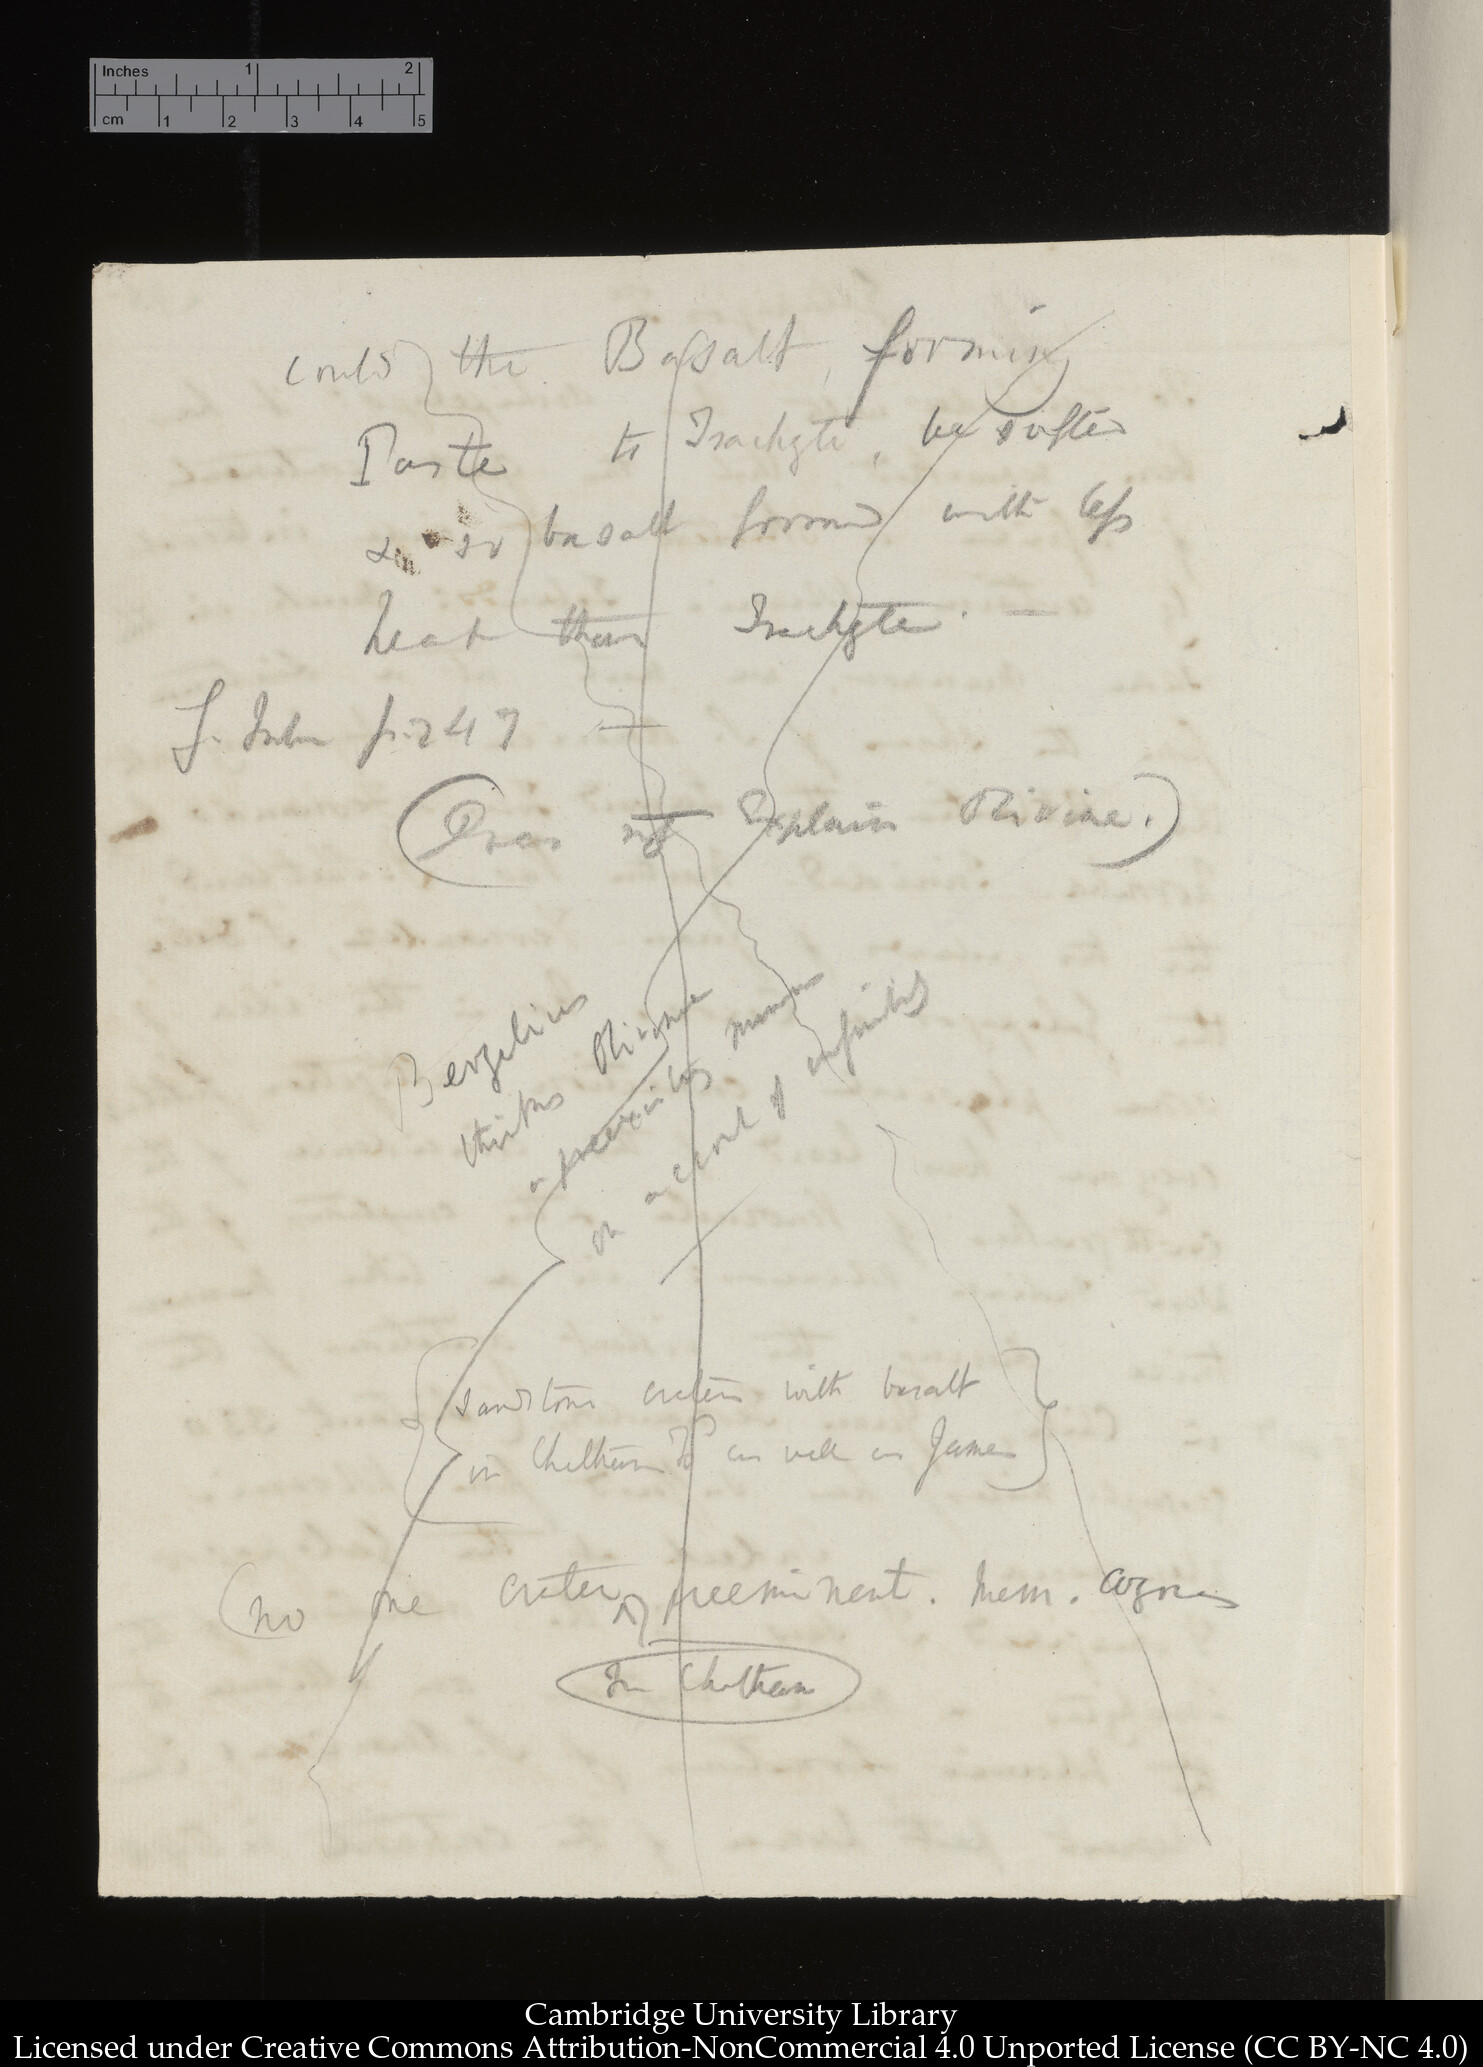 Inches 1 2
cm 1 2 3 4 5
could the Basalt, forming
Paste to Trachyte, be softer
& so basalt formed with less
heat than Trachyte. —
p. 247
(Does not Explain Olivine.)
Berzelius
thinks Olivine
approximates
on account of infusibility
sandstone craters with basalt
in Chatham Isd as well as James
(no one crater preeminent. Mem. Azores
In Chatham
Cambridge University Library
Licensed under Creative Commons Attribution-NonCommercial 4.0 Unported License (CC BY-NC 4.0)